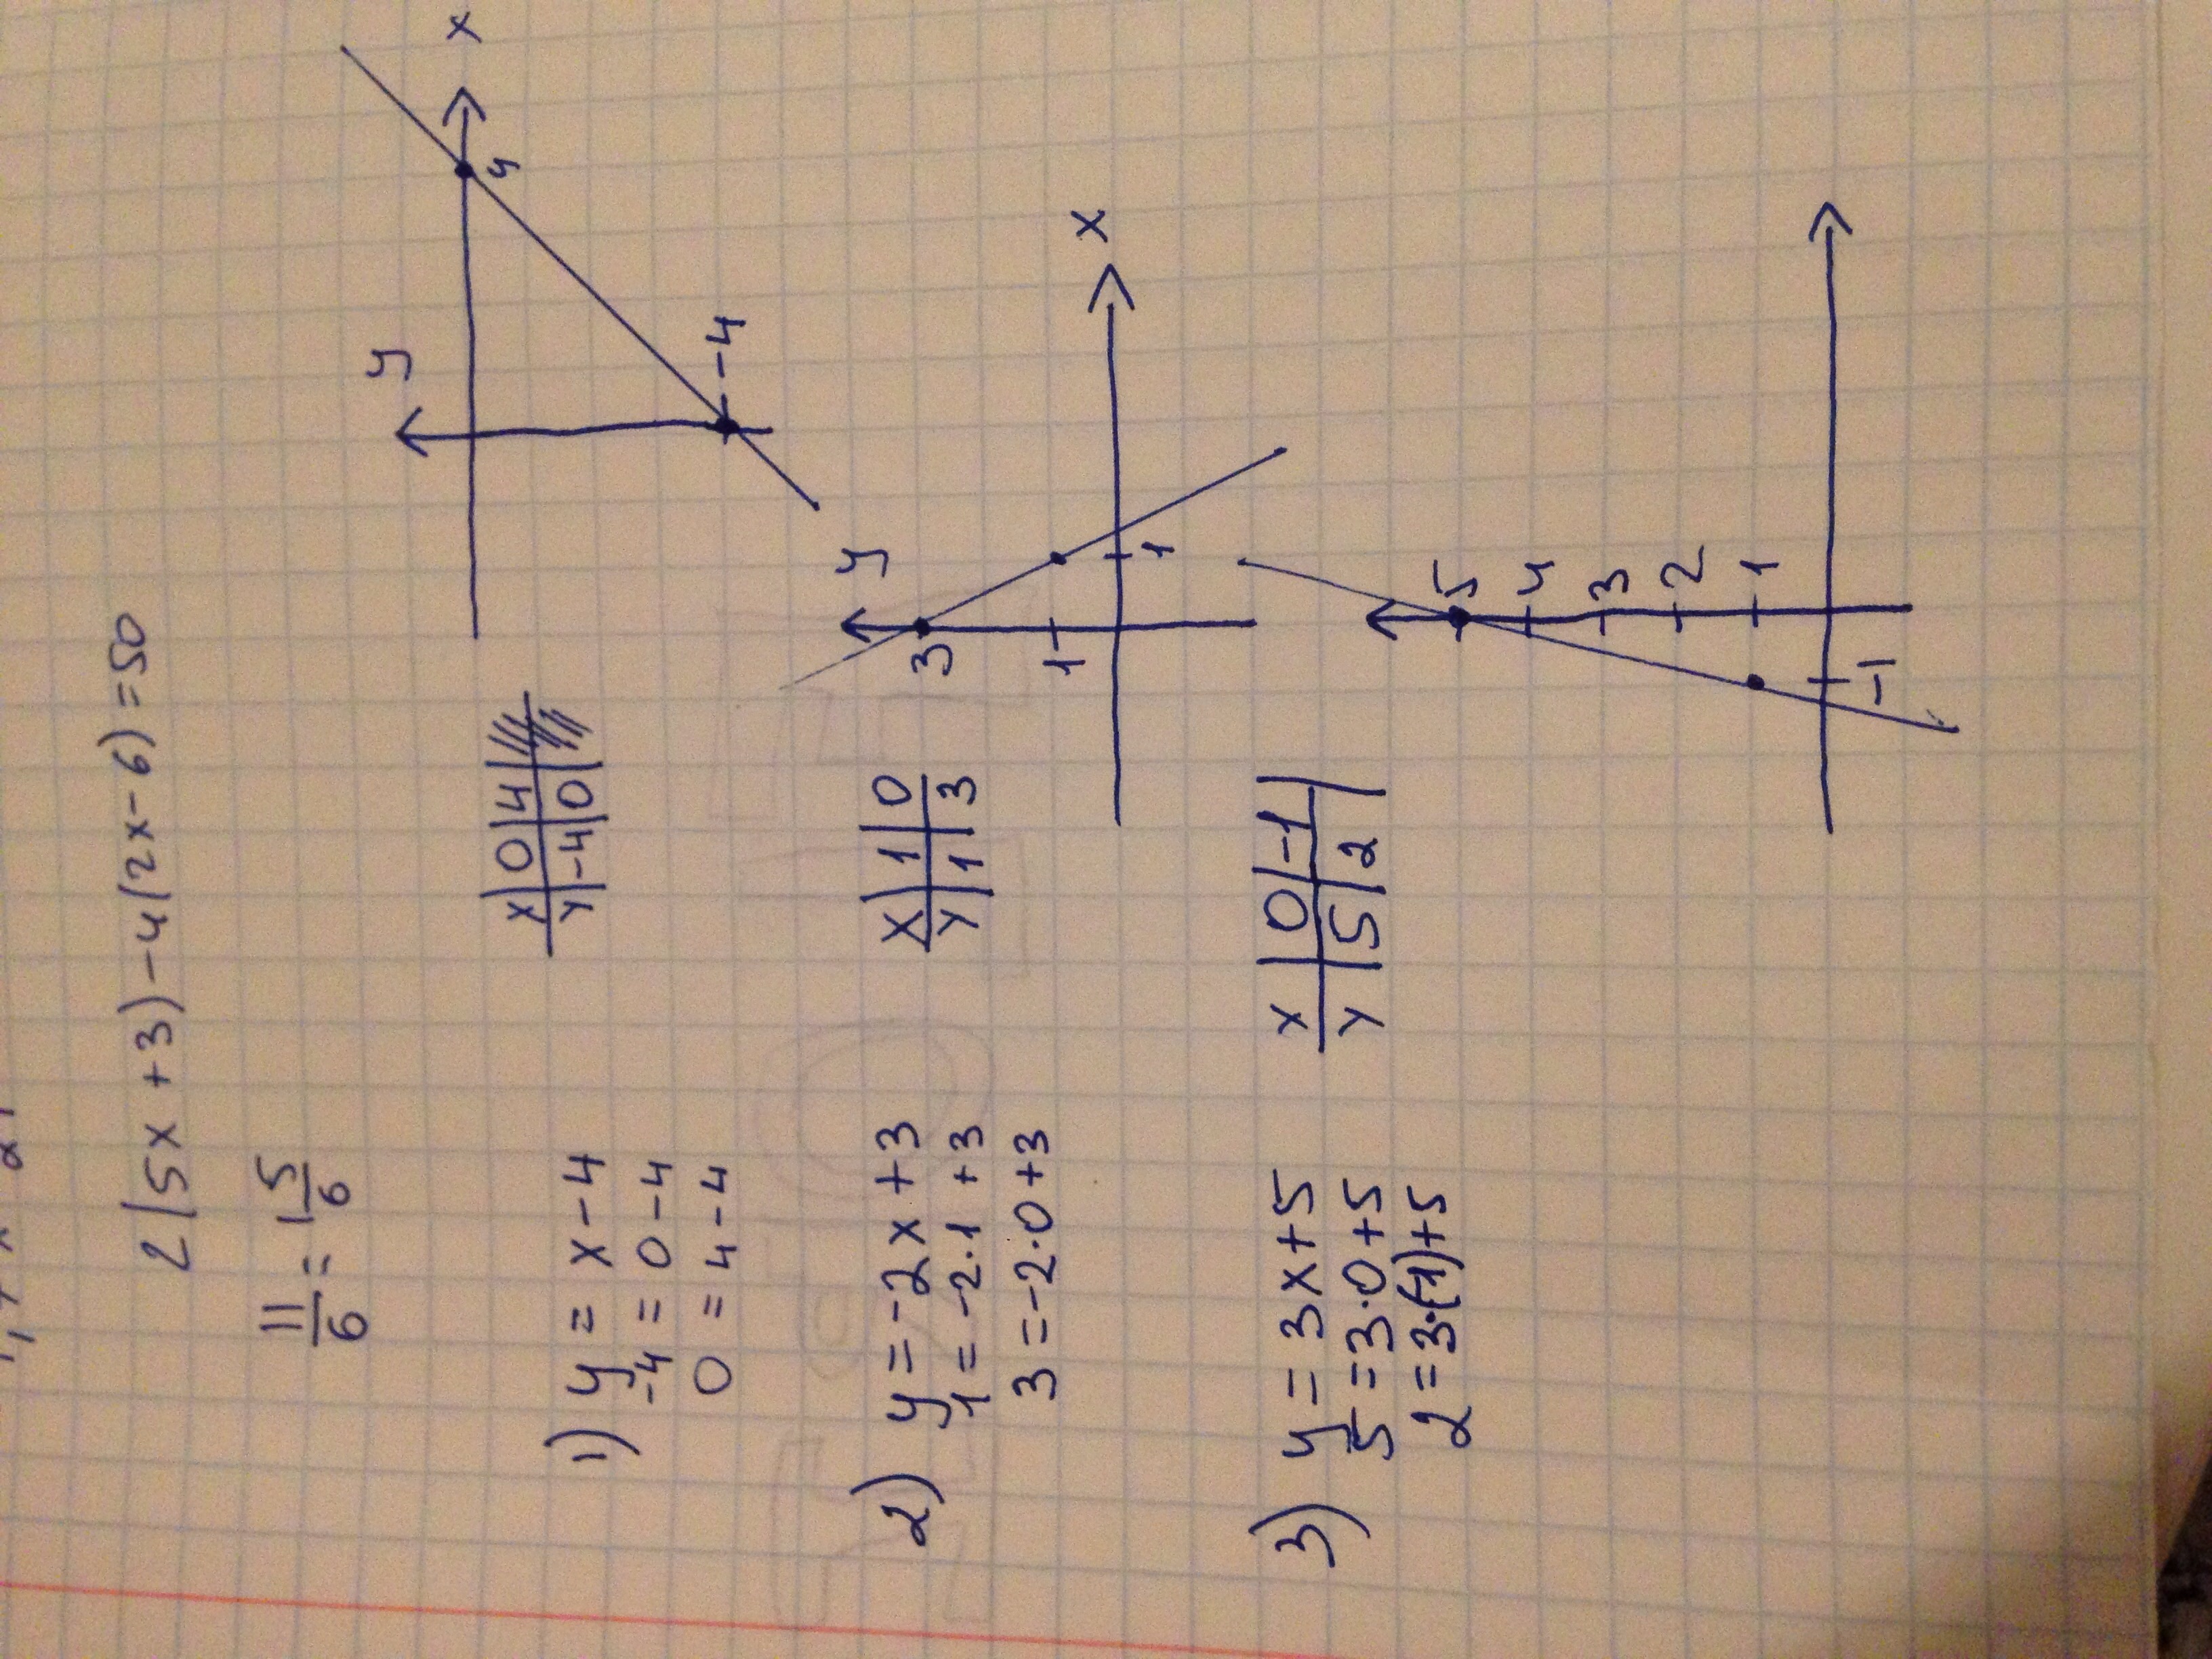 2(5x+3)-4(2x-6)=50
11/6 = 1 5/6
1) y = x-4
-4 = 0-4
0 = 4-4
x | 0 | 4 |
y | -4 | 0 |
y
x
4
-4
2) y = -2x+3
1 = -2·1+3
3 = -2·0+3
x | 1 | 0
y | 1 | 3
y
x
3
1
1
3) y = 3x+5
5 = 3·0+5
2 = 3·(-1)+5
x | 0 | -1 |
y | 5 | 2 |
5
4
3
2
1
-1